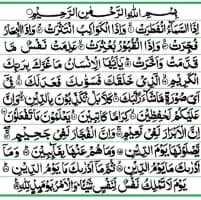 بِسْمِ اللّٰهِ الرَّحْمٰنِ الرَّحِيْمِ
اِذَا السَّمَآءُ انْفَطَرَتْ ۙ وَاِذَا الْكَوَاكِبُ انْتَثَرَتْ ۙ وَاِذَا الْبِحَارُ
فُجِّرَتْ ۙ وَاِذَا الْقُبُوْرُ بُعْثِرَتْ ۙ عَلِمَتْ نَفْسٌ مَّا
قَدَّمَتْ وَاَخَّرَتْ ؕ يٰۤاَيُّهَا الْاِنْسَانُ مَا غَرَّكَ بِرَبِّكَ
الْكَرِيْمِ ۙ الَّذِيْ خَلَقَكَ فَسَوّٰىكَ فَعَدَلَكَ ۙ فِيْۤ
اَيِّ صُوْرَةٍ مَّا شَآءَ رَكَّبَكَ ؕ كَلَّا بَلْ تُكَذِّبُوْنَ بِالدِّيْنِ ۙ وَاِنَّ
عَلَيْكُمْ لَحٰفِظِيْنَ ۙ كِرَامًا كَاتِبِيْنَ ۙ يَعْلَمُوْنَ مَا تَفْعَلُوْنَ
اِنَّ الْاَبْرَارَ لَفِيْ نَعِيْمٍ ۚ وَاِنَّ الْفُجَّارَ لَفِيْ جَحِيْمٍ ۚ
يَّصْلَوْنَهَا يَوْمَ الدِّيْنِ وَمَا هُمْ عَنْهَا بِغَآئِبِيْنَ ؕ وَمَاۤ
اَدْرٰىكَ مَا يَوْمُ الدِّيْنِ ۙ ثُمَّ مَاۤ اَدْرٰىكَ مَا يَوْمُ الدِّيْنِ ؕ
يَوْمَ لَا تَمْلِكُ نَفْسٌ لِّنَفْسٍ شَيْئًا ؕ وَالْاَمْرُ يَوْمَئِذٍ لِّلّٰهِ